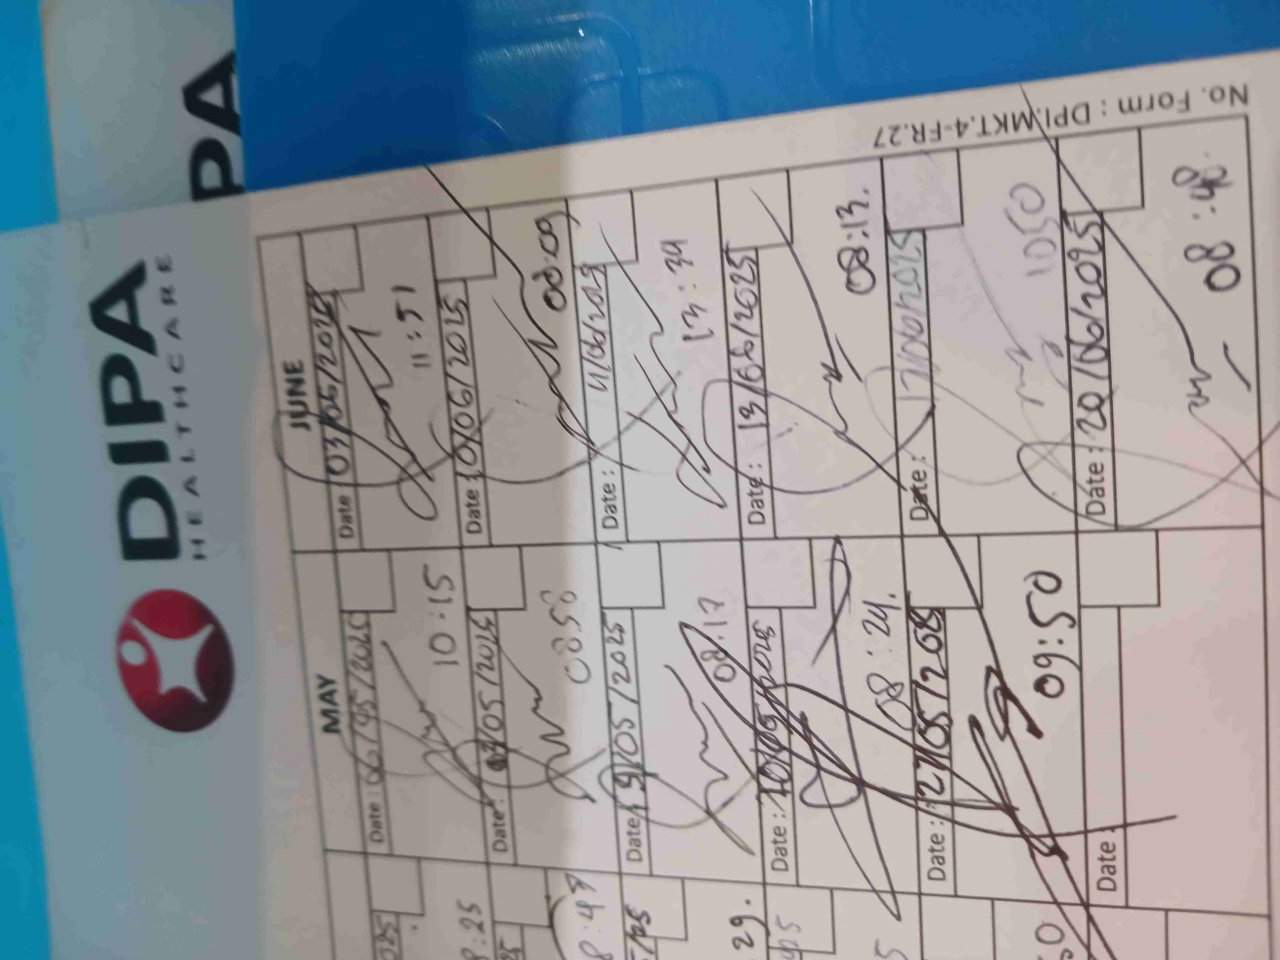 DIPA
HEALTHCARE
PA
No. Form : DPI.MKT.4-FR.27
MAY
Date : 06/05/2025
10:15
Date : /05/2025
0858
Date : 9/05/2025
08:17
Date : 20/05/2025
08:24.
Date : 27/05/205
09:50
Date :
JUNE
Date 03/06/2025
11:51
Date : 10/06/2025
08:09
Date : 11/06/2025
13:39
Date : 13/06/2025
08:13.
Date : 17/06/2025
1050
Date : 20/06/2025
08:48.
025
8:25
25
8:47
29.
50